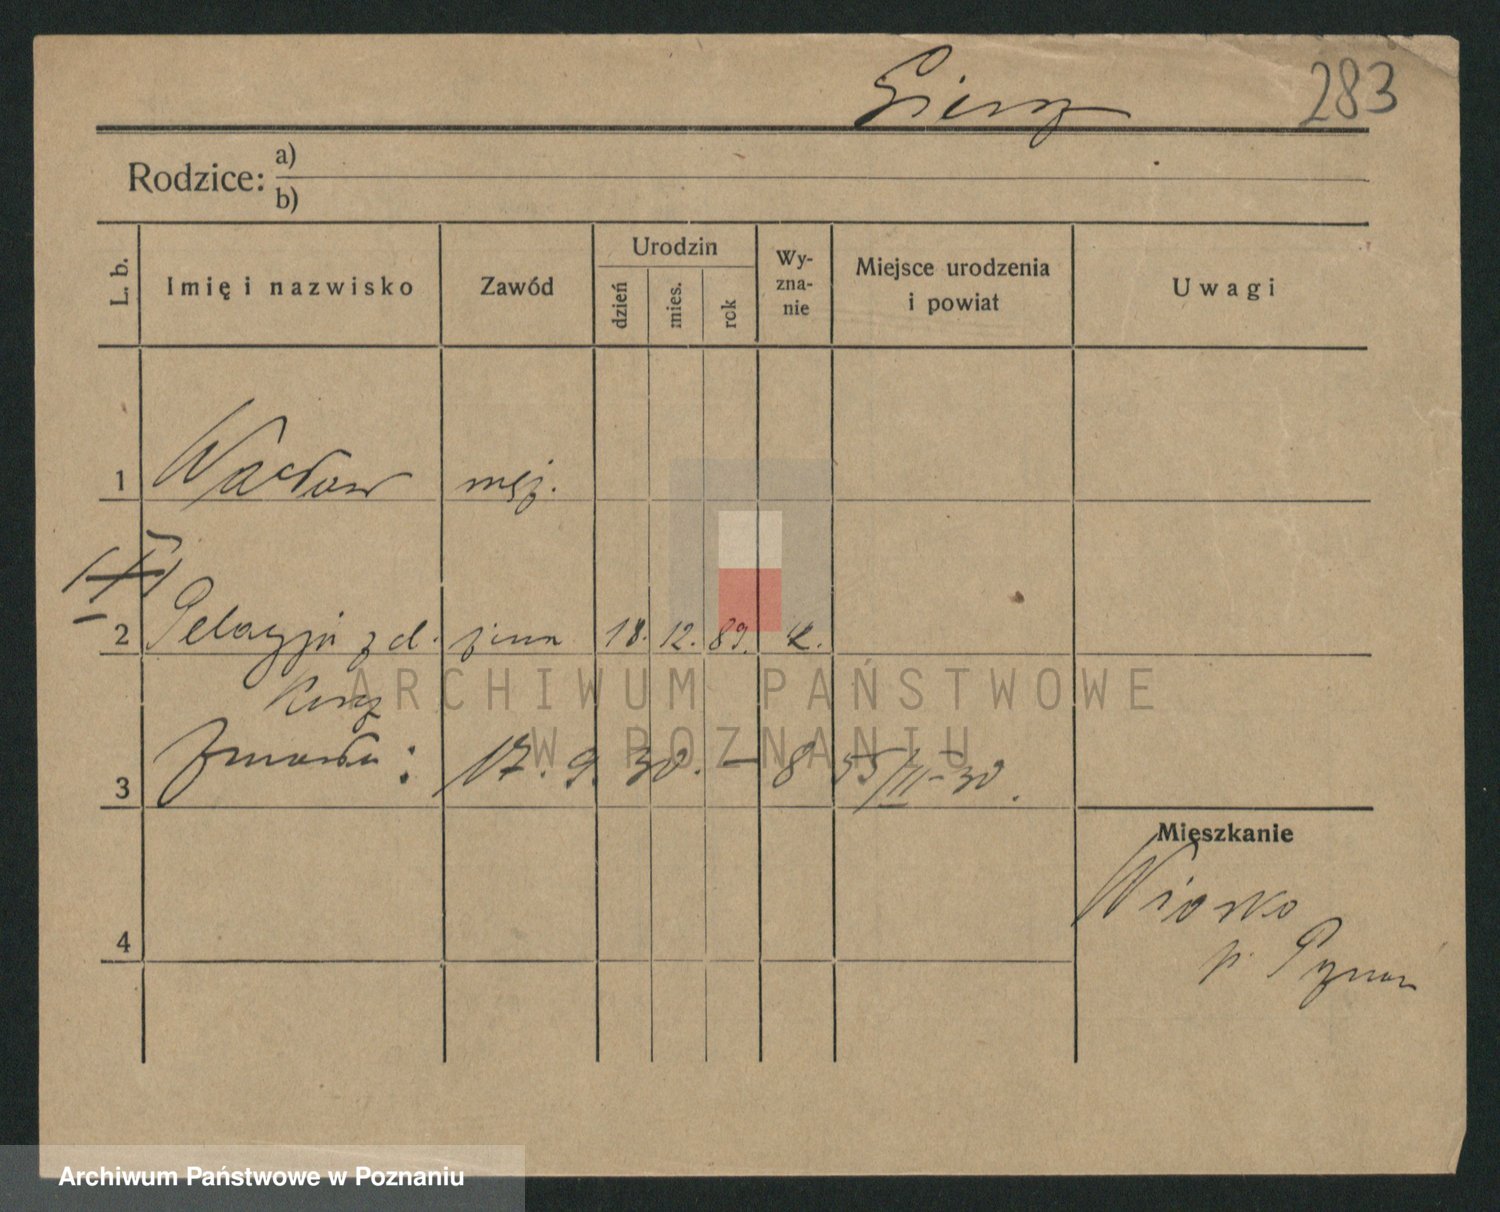 283
Rodzice: a)
b)
L. b. Imię i nazwisko Zawód Urodzin dzień mies. rok Wy-zna-nie Miejsce urodzenia i powiat Uwagi
1 Wacław mąż.
2 Pelagja z d. żona 18. 12. 89. k.
Zmarła: 17. 9. 30. – 8 55/III–30.
3
Mieszkanie
4
p. Poznań
ARCHIWUM PAŃSTWOWE
W POZNANIU
Archiwum Państwowe w Poznaniu